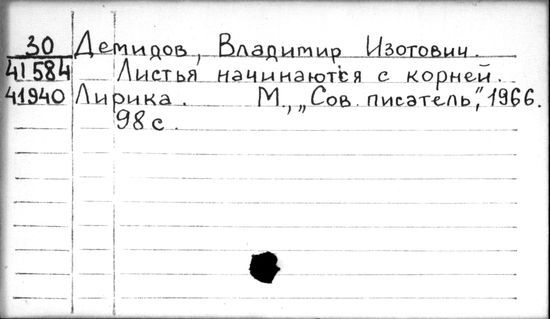 30 Демидов, Владимир Изотович.
41584 Листья начинаются с корней.
41940 Лирика. М., „Сов. писатель", 1966.
98 с.